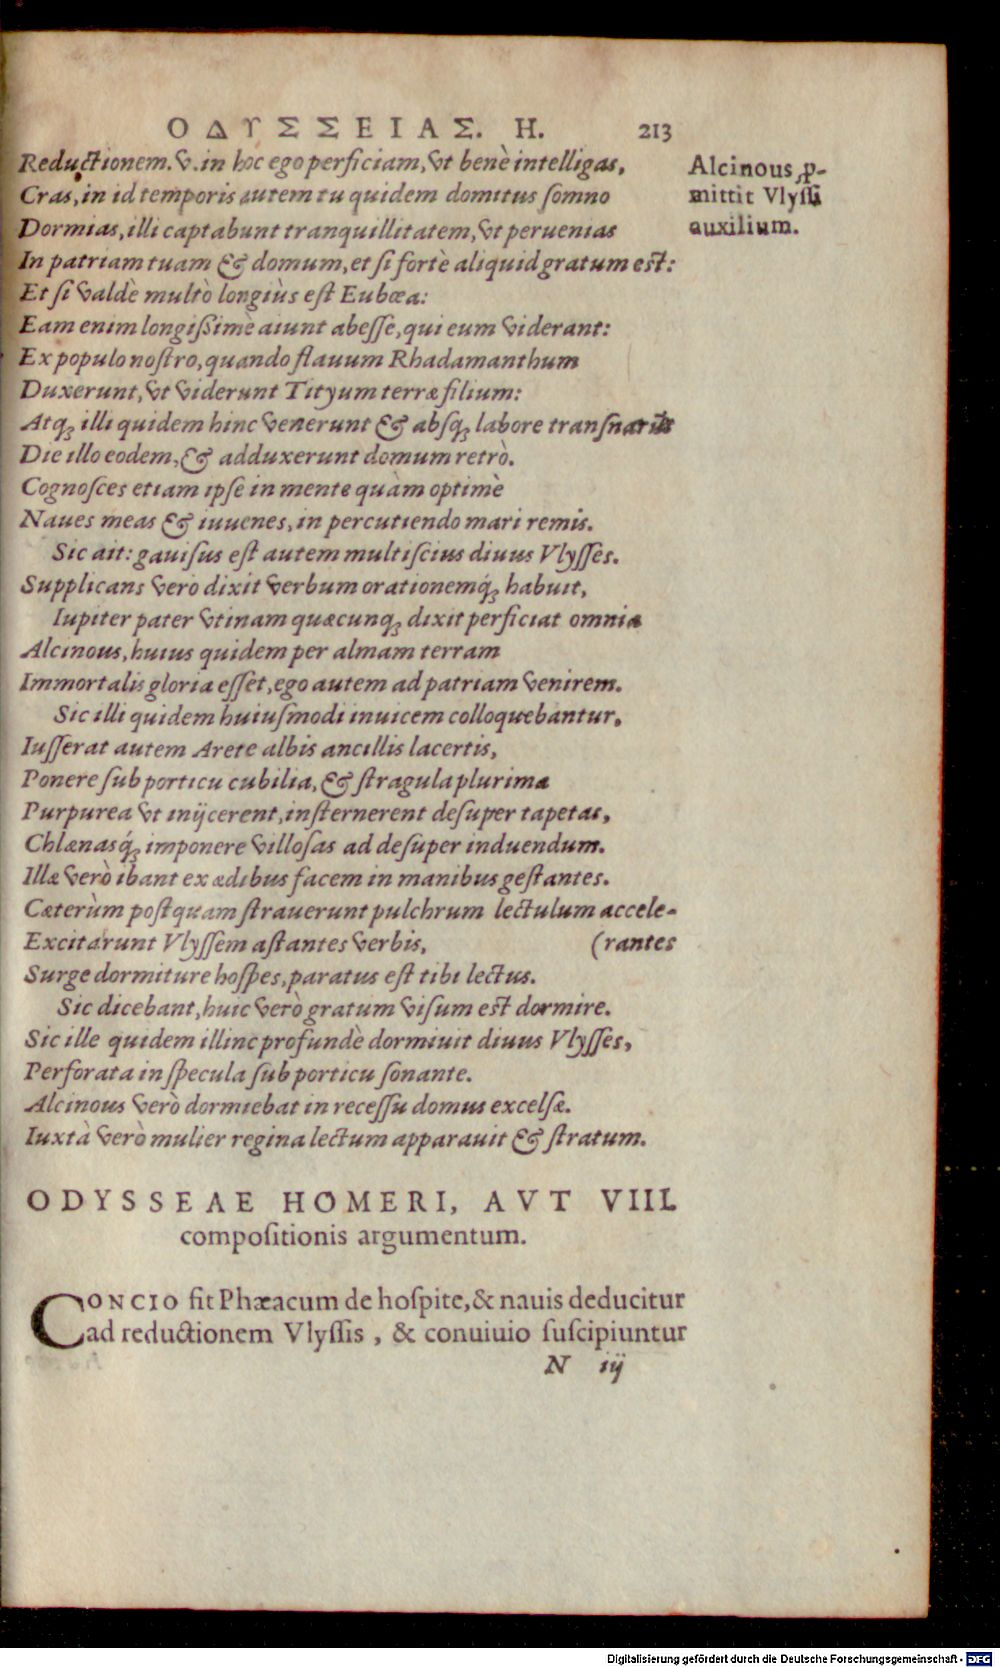 ΟΔΥΣΣΕΙΑΣ. Η. 213
Reductionem. v. in hoc ego perficiam, vt benè intelligas,
Cras, in id temporis autem tu quidem domitus somno
Dormias, illi captabunt tranquillitatem, vt peruenias
In patriam tuam & domum, et si fortè aliquid gratum est:
Et si valdè multò longiùs est Eubœa:
Eam enim longißimè aiunt abesse, qui eum viderant:
Ex populo nostro, quando flauum Rhadamanthum
Duxerunt, vt viderunt Tityum terræ filium:
Atq; illi quidem hinc venerunt & absq; labore transnarūt
Die illo eodem, & adduxerunt domum retrò.
Cognosces etiam ipse in mente quàm optimè
Naues meas & iuuenes, in percutiendo mari remis.
Sic ait: gauisus est autem multiscius diuus Vlysses.
Supplicans vero dixit verbum orationemq́; habuit,
Iupiter pater vtinam quæcunq; dixit perficiat omnia
Alcinous, huius quidem per almam terram
Immortalis gloria esset, ego autem ad patriam venirem.
Sic illi quidem huiusmodi inuicem colloquebantur,
Iusserat autem Arete albis ancillis lacertis,
Ponere sub porticu cubilia, & stragula plurima
Purpurea vt inijcerent, insternerent desuper tapetas,
Chlænasq́; imponere villosas ad desuper induendum.
Illæ verò ibant ex ædibus facem in manibus gestantes.
Cæterùm postquam strauerunt pulchrum lectulum accele-
Excitarunt Vlyssem astantes verbis, (rantes
Surge dormiture hospes, paratus est tibi lectus.
Sic dicebant, huic verò gratum visum est dormire.
Sic ille quidem illinc profundè dormiuit diuus Vlysses,
Perforata in specula sub porticu sonante.
Alcinous verò dormiebat in recessu domus excelsæ.
Iuxtà verò mulier regina lectum apparauit & stratum.
Alcinous ꝓ-
mittit Vlyssi
auxilium.
ODYSSEAE HOMERI, AVT VIII.
compositionis argumentum.
CONCIO fit Phæacum de hospite, & nauis deducitur
ad reductionem Vlyssis, & conuiuio suscipiuntur
N iij
Digitalisierung gefördert durch die Deutsche Forschungsgemeinschaft - DFG